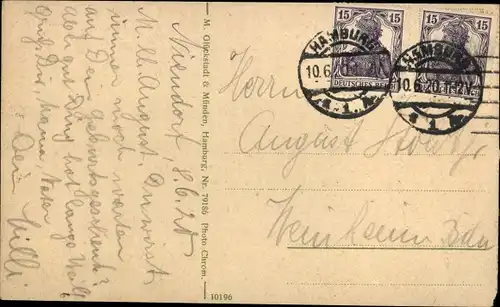 Niendorf, 8.6.20
M. lb. August, Du wirst
immer noch warten
auf Dein Geburtsgeschenk?
der gut Ding hat lange Weil,
Gruß Dir, Mama, Vater
Dein
Willi
M. Glückstadt & Münden, Hamburg, Nr. 79186 Photo Chrom.
10196
15 15
DEUTSCHES REICH
15 15
HAMBURG
10.6.20
* 1 *
HAMBURG
10.6.20
* 1 *
Herrn
August
Weinheim Baden